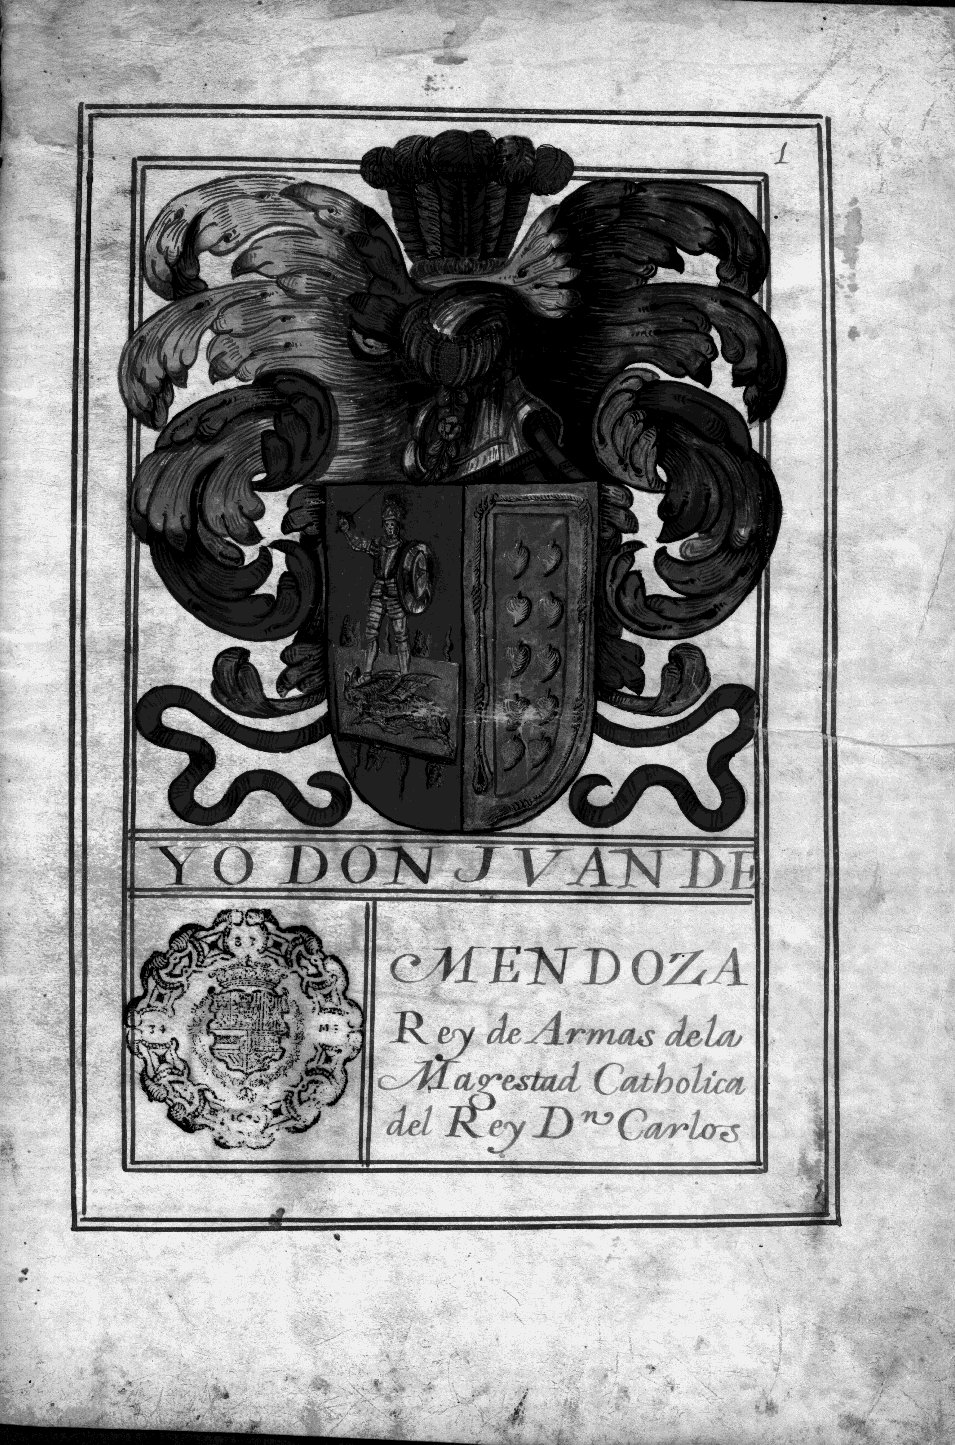 1
YO DON JVAN DE
MENDOZA
Rey de Armas de la
Magestad Catholica
del Rey Dn Carlos